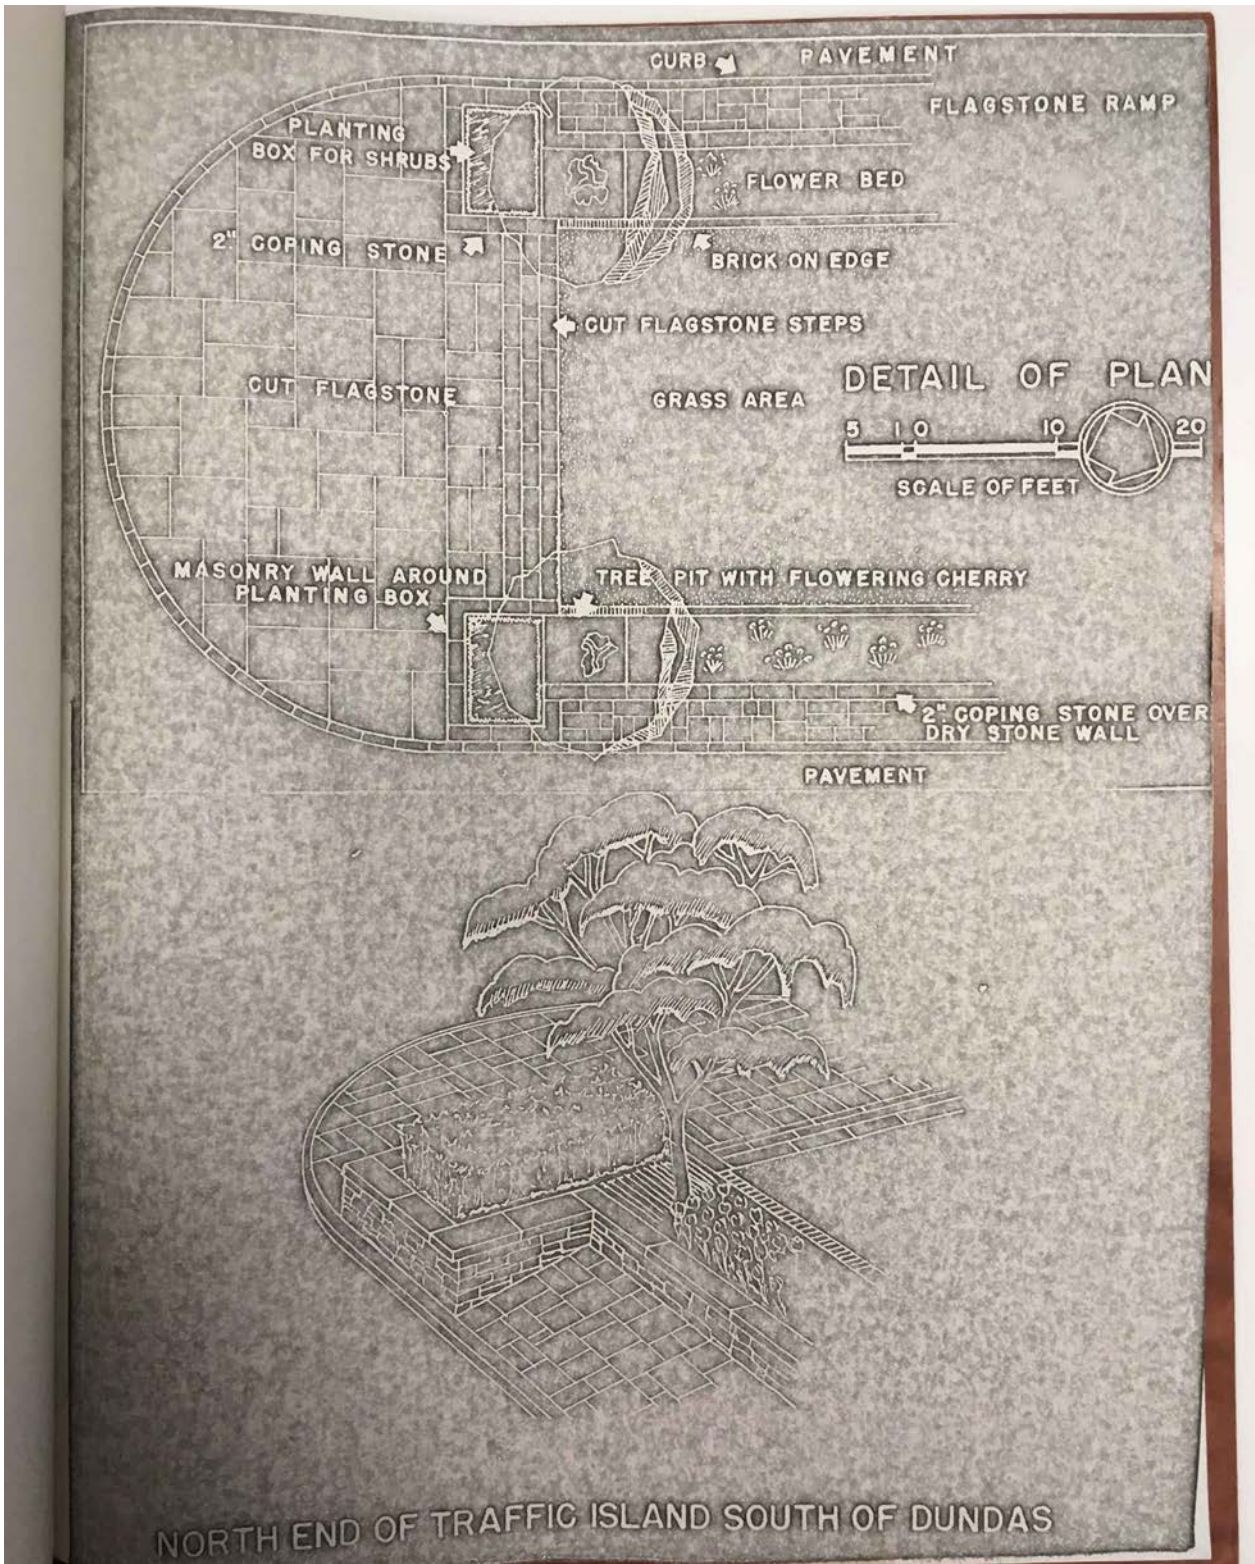 CURB
PAVEMENT
FLAGSTONE RAMP
PLANTING
BOX FOR SHRUBS
FLOWER BED
2" COPING STONE
BRICK ON EDGE
CUT FLAGSTONE STEPS
DETAIL OF PLAN
CUT FLAGSTONE
GRASS AREA
5 1 0 10 20
SCALE OF FEET
MASONRY WALL AROUND
PLANTING BOX
TREE PIT WITH FLOWERING CHERRY
2" COPING STONE OVER
DRY STONE WALL
PAVEMENT
NORTH END OF TRAFFIC ISLAND SOUTH OF DUNDAS